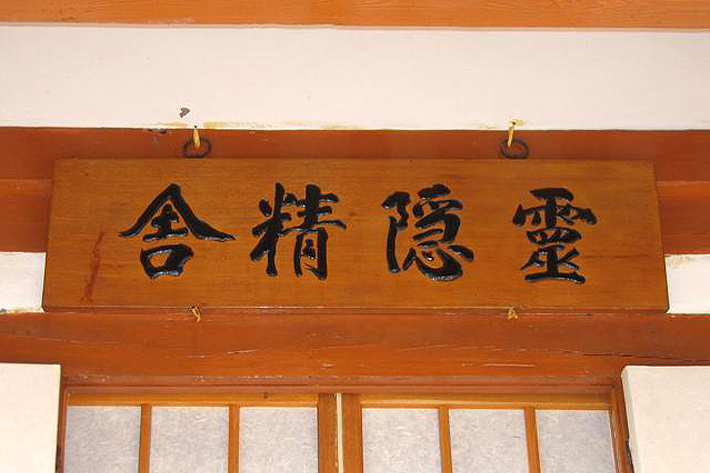 靈隱精舍